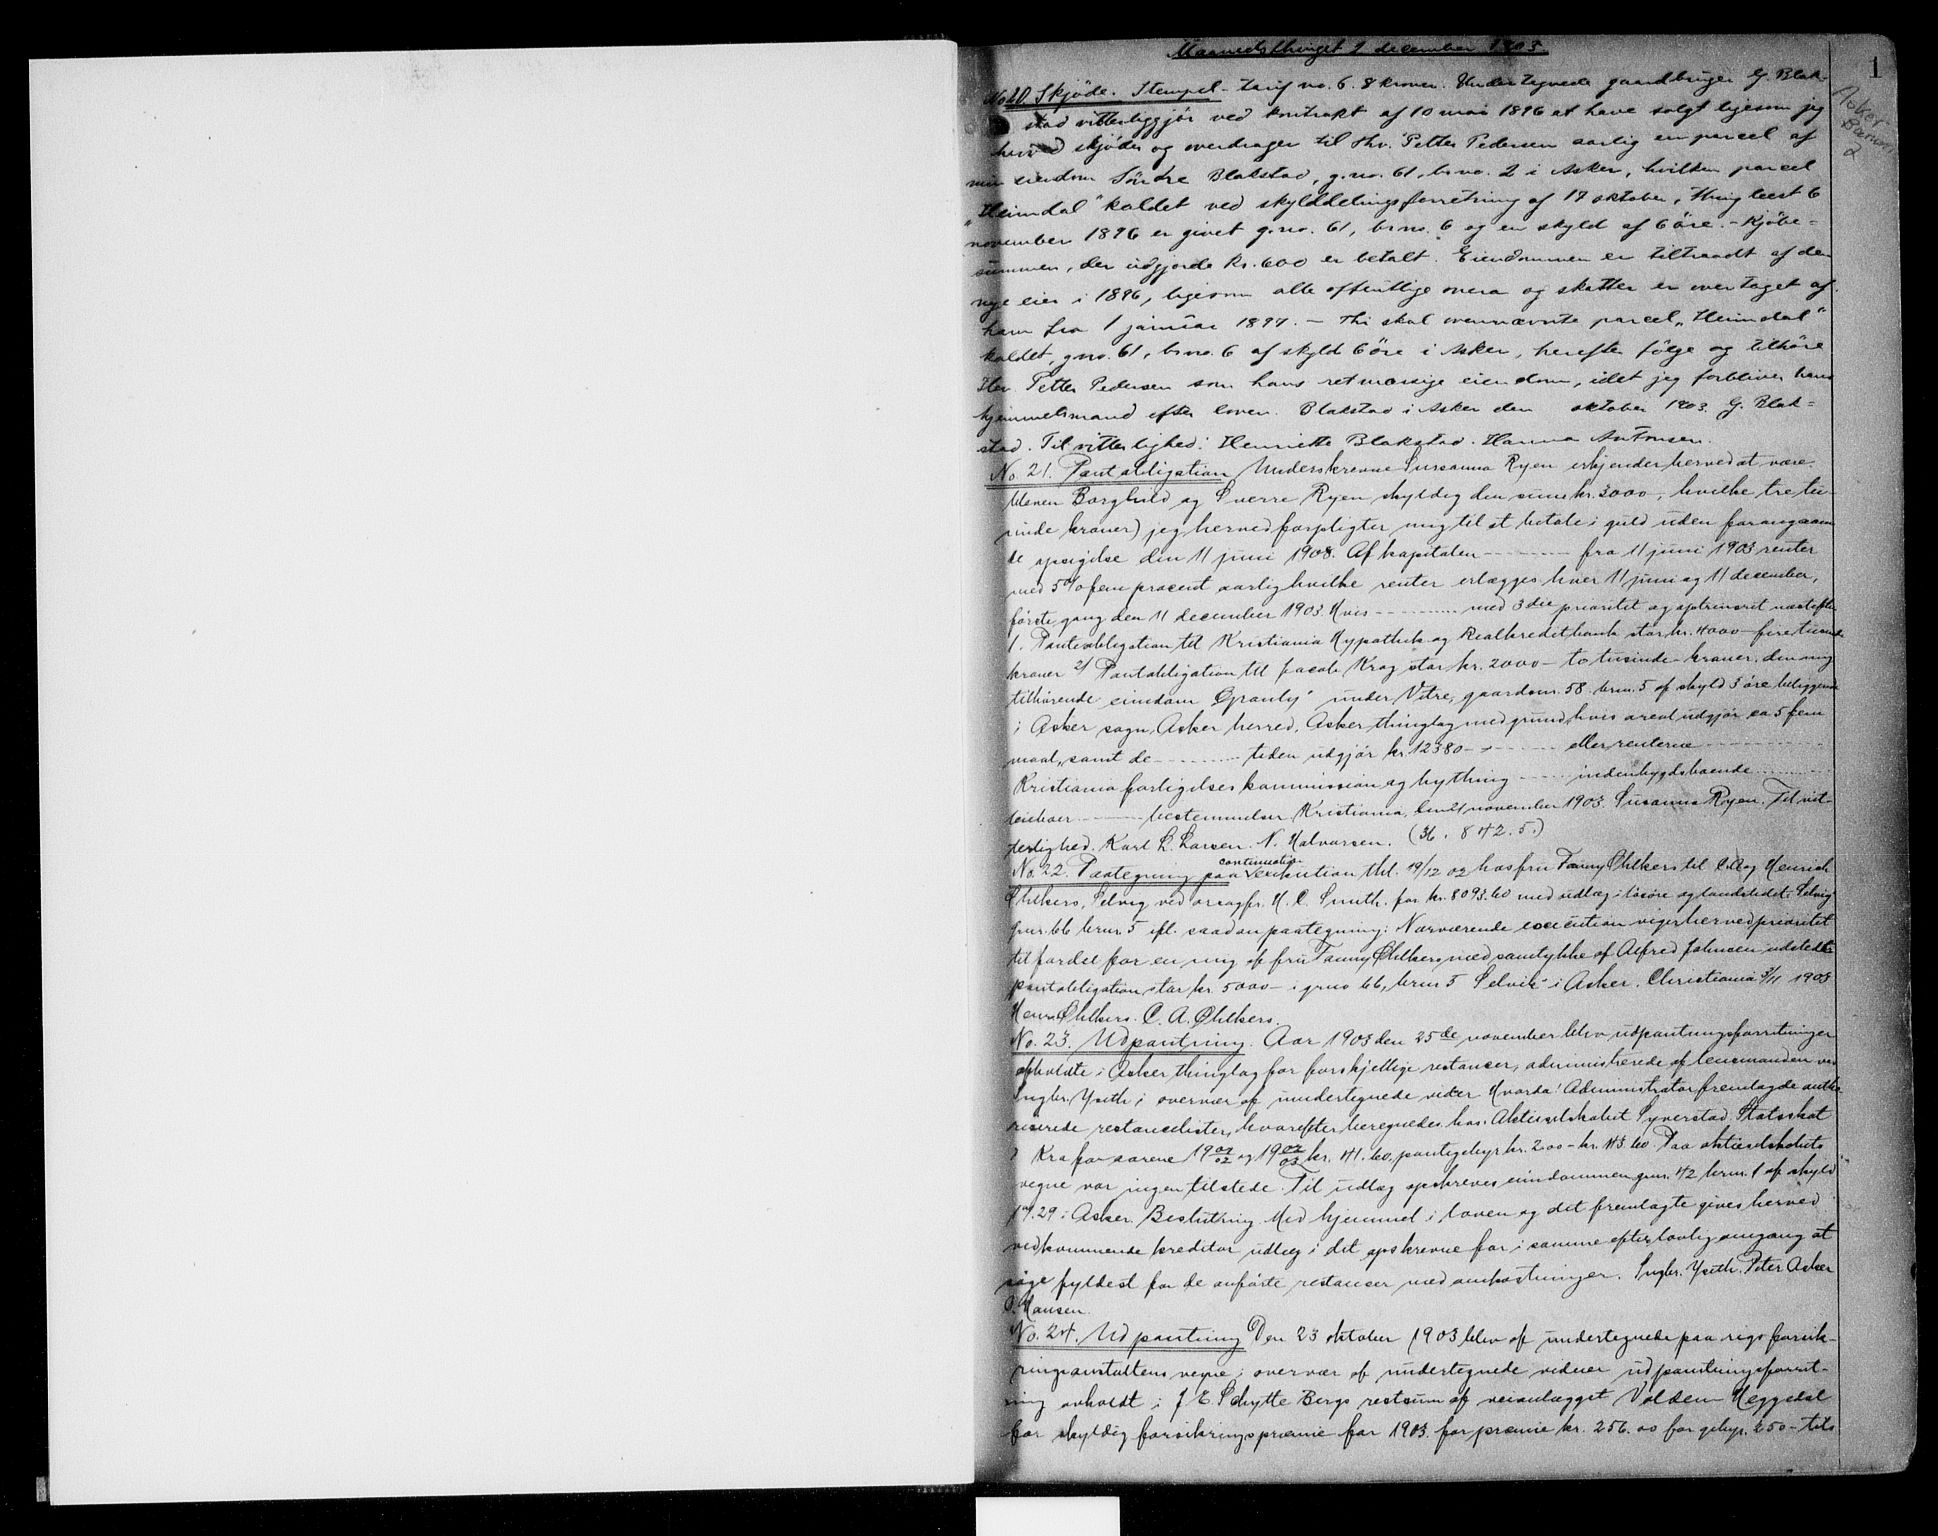 Maanedsthinget 1 december 1903.
1
Asker
Bærum
2
No 20. Skjøde. Stempel-tarif no. 6. 8 kroner. Undertegnede gaardbruger G. Blak-
stad vitterliggjør ved kontrakt af 10 mai 1896 at have solgt ligesom jeg
herved skjøder og overdrager til Hr. Petter Pedersen aarlig en parcel af
min eiendom Söndre Blakstad, g.no. 61, br.no. 2 i Asker, hvilken parcel
"Heimdal" kaldet ved skylddelingsforretning af 17 oktober, thinglæst 6
november 1896 er givet g.no. 61, br.no. 6 og en skyld af 6 øre. - Kjøbe-
summen, der udgjorde kr. 600 er betalt. Eiendommen er tiltraadt af den
nye eier i 1896, ligesom alle offentlige onera og skatter er overtaget af
ham fra 1 januar 1897. - Thi skal ovennævnte parcel "Heimdal"
kaldet, g.no. 61, br.no. 6 af skyld 6 øre i Asker, herefter følge og tilhøre
Herr Petter Pedersen som hans retmæssige eiendom, idet jeg forbliver hans
hjemmelsmand efter loven. Blakstad i Asker den oktober 1903. G. Blak=
stad. Til vitterlighed: Henriette Blakstad. Hanna Antonsen.
No. 21. Pantobligation Underskrevne Susanna Ryen erkjender herved at være
Borghild og Sverre Ryen skyldig den sum kr. 3000, hvilke tre tu-
sinde kroner) jeg herved forpligter mig til at betale i guld uden foregaaen
de opsigelse den 11 juni 1908. Af kapitalen ---------- fra 11 juni 1903 renter
med 5% fem procent aarlig hvilke renter erlægges hver 11 juni og 11 december,
første gang den 11 december 1903. Hvis ---------- med 3die prioritet og oprinsret næstefter
1. Pantobligation til Kristiania Hypothek og Realkreditbank stor kr. 4000 - fire tusinde
kroner 2) Pantobligation til Jacob Krag stor kr. 2000 - to tusinde - kroner, den mig
tilhørende eiendom "Granly" under Vitre, gaardsnr. 58 brnr. 5 af skyld 3 øre beliggende
i Asker sogn, Asker herred, Asker thinglag med grund, hvis areal udgjør ca 5 fem
maal, samt de ---------- tiden udgjør kr. 12380 - ---------- eller renterne ----------
Kristiania forligelseskommission og bything ------ indenbygdsboende ------
beboer ------ bestemmelser Kristiania, den 21 november 1903. Susanna Ryen. Til vit-
terlighed. Karl L. Larsen. N. Halvorsen. (36. 842. 5.)
continuation
No. 22. Paategning paa execution thl. 19/12 02 hos fru Fanny Øhlkers til C. A. og Henrich
Øhlkers, Selvig ved orsagfr. H. C. Smith. for kr. 8093.60 med udlæg i løsøre og landstedet "Selvig"
gnr. 66 brnr. 5 ifl. saadan paategning: Nærværende execution viger herved prioritet
til fordel for en ny af fru Fanny Øhlkers med samtykke af Alfred Johnsen udstedt
pantobligation stor kr. 5000 - i gno 66, brnr 5 "Selvik" i Asker. Christiania 3/11 1903
Henr. Øhlkers. C. A. Øhlkers.
No. 23. Udpantning. Aar 1903 den 25de november blev udpantningsforretninger
afholdte i Asker thinglag for forskjellige restancer, administrerede af lensmanden ved
Ingbr. Yseth i overvær af undertegnede vidner Hvorda: Administrator fremlagde autho
riserede restancelister, hvorefter beregnedes hos: Aktieselskabet Syverstad Statsskat
Kra for aarene 1901/02 og 1902/03 kr. 41.60, pantegebyr kr. 2.00 - kr. 43.60. Paa aktieselskabets
vegne var ingen tilstede. Til udlæg opskreves eiendommen gnr. 42 brnr. 1 af skyld
29 i Asker. Beslutning. Med hjemmel i loven og det fremlagte gives herved
vedkommende kreditor udlæg i det opskrevne for i samme efter lovlig omgang at
søge fyldest for de anførte restancer med omkostninger. Ingbr. Yseth. Peter Asker
O. Hansen.
No. 24. Udpantning Den 23 oktober 1903 blev af undertegnede paa rigsforsik-
ringsanstaltens vegne i overvær af undertegnede vidner udpantningsforret-
ning avholdt i J. E. Schytte Bergs restsum af veianlægget Volden - Heggedal
for skyldig forsikringspræmie for 1903. for præmie kr. 256.00 for gebyr. 2.50 - tils